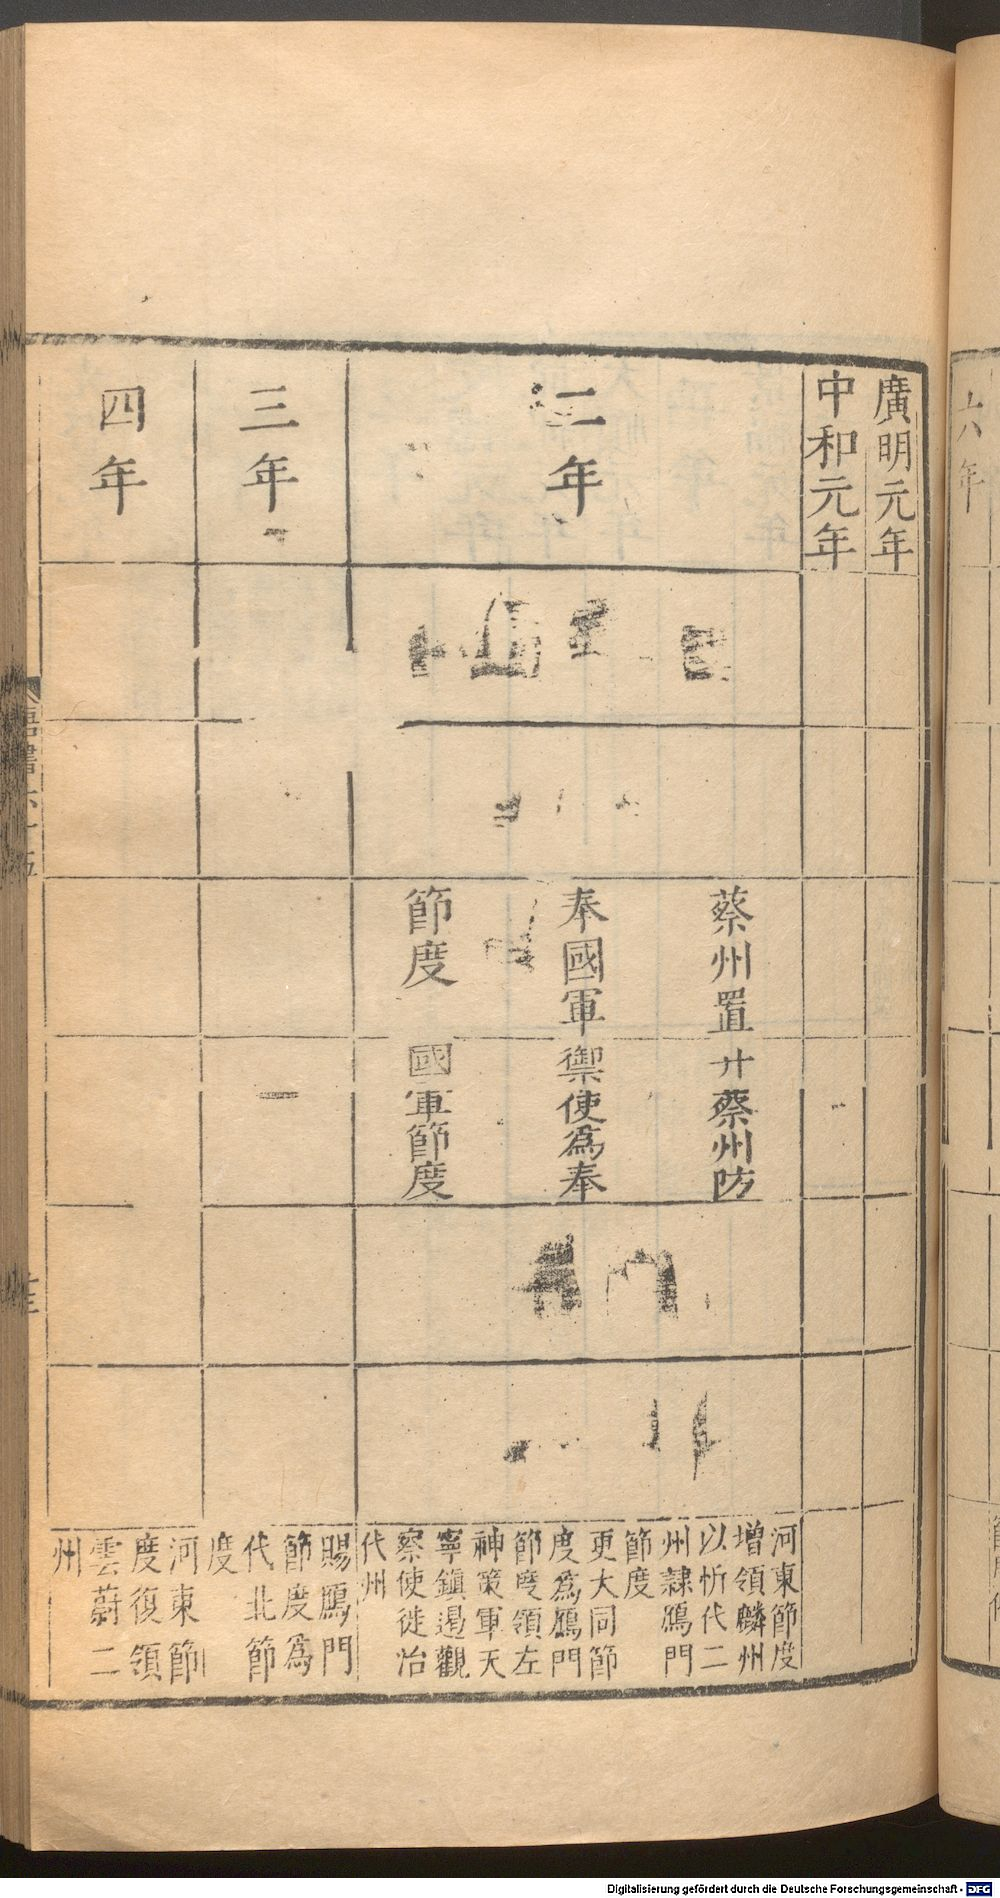 廣明元年
中和元年
二年
蔡州置
奉國軍
節度
升蔡州防
禦使為奉
國軍節度
河東節度
增領麟州
以忻代二
州隸鴈門
節度
更大同節
度為鴈門
節度領左
神策軍天
寧鎮遏觀
察使徙治
代州
三年
賜鴈門
節度為
代北節
度
四年
河東節
度復領
雲蔚二
州
唐書六十五
六年
Digitalisierung gefördert durch die Deutsche Forschungsgemeinschaft - DFG